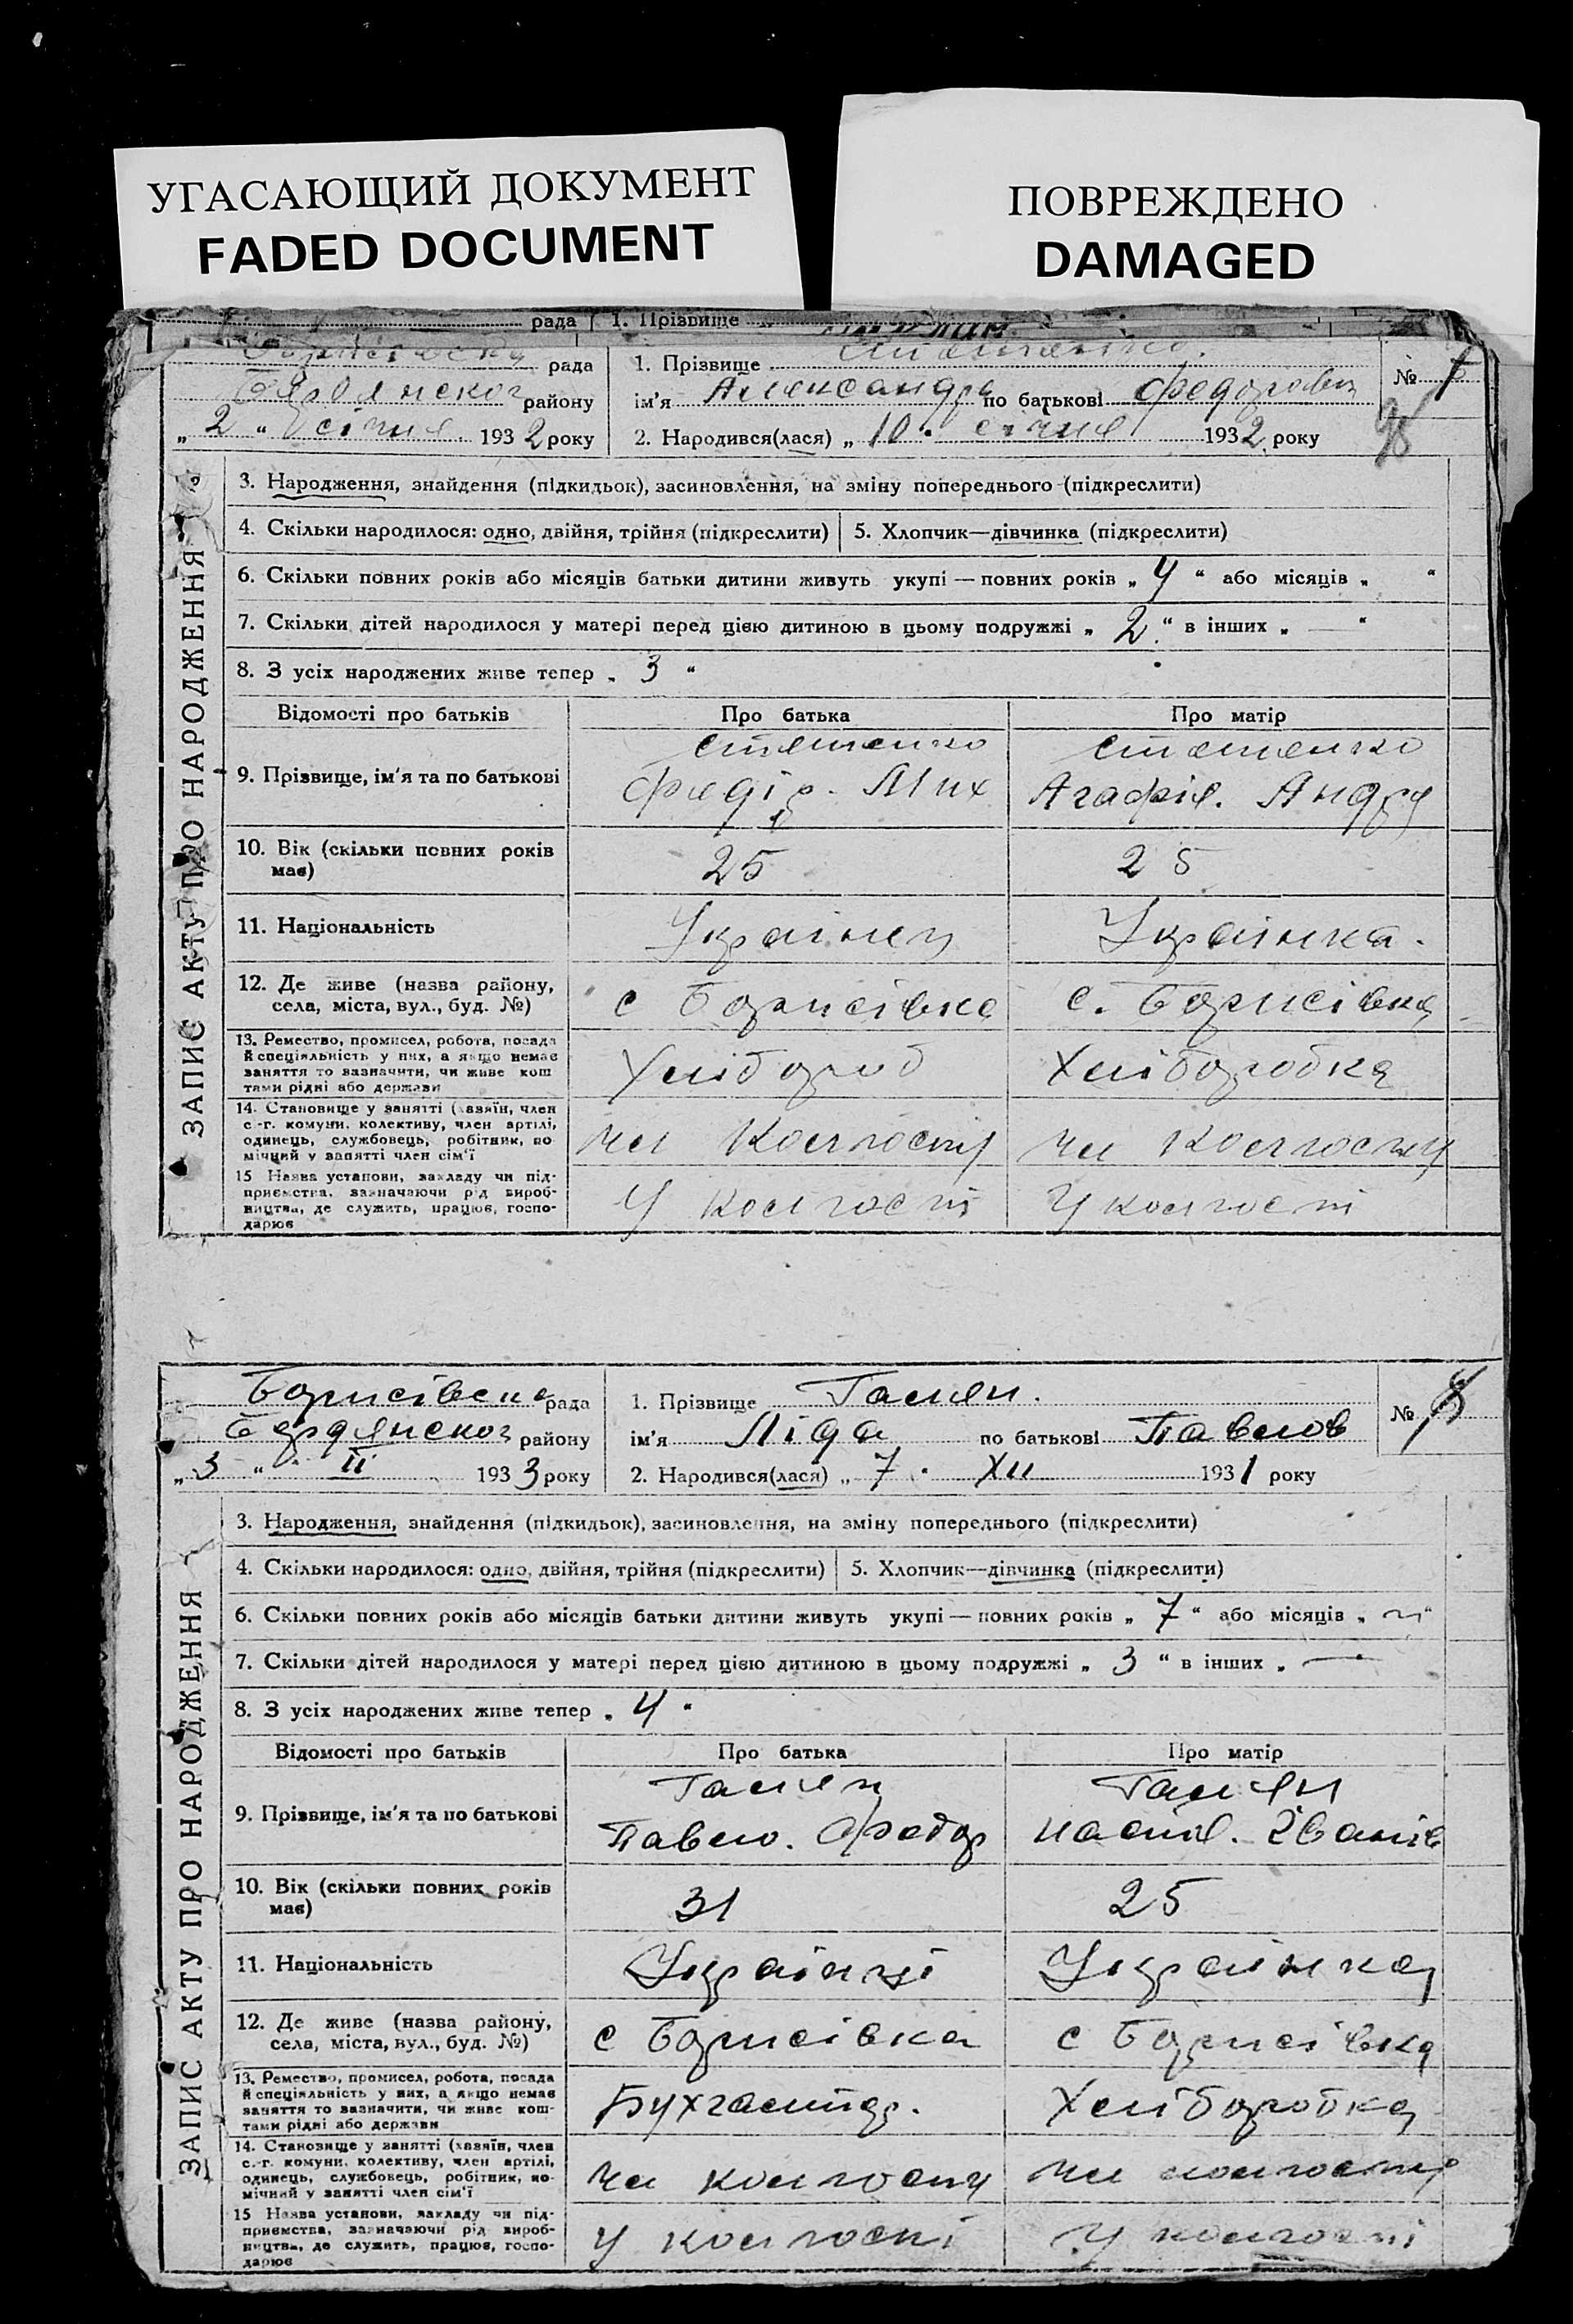 УГАСАЮЩИЙ ДОКУМЕНТ
FADED DOCUMENT
ПОВРЕЖДЕНО
DAMAGED
рада 1. Прізвище
рада 1. Прізвище
Бердянског району ім'я Александра по батькові Федоровн №
„ 2 “ січня 1932 року 2. Народився(лася) „ 10 • січня 1932 року
3. Народження, знайдення (підкидьок), засиновлення, на зміну попереднього (підкреслити)
4. Скільки народилося: одно, двійня, трійня (підкреслити) 5. Хлопчик—дівчинка (підкреслити)
6. Скільки повних років або місяців батьки дитини живуть укупі — повних років „ 4 “ або місяців „ “
7. Скільки дітей народилося у матері перед цією дитиною в цьому подружжі „ 2 “ в інших „ — “
8. З усіх народжених живе тепер „ 3 “
Відомості про батьків Про батька Про матір
9. Прізвище, ім'я та по батькові
Федір. Мих Агафія. Андру
10. Вік (скільки повних років має) 25 25
11. Національність Українец Українка.
12. Де живе (назва району, села, міста, вул., буд. №) с Борисівка с. Борисівка
13. Ремество, промисел, робота, посада й спеціяльність у них, а якщо немає заняття то зазначити, чи живе коштами рідні або держави Хлібороб Хліборобка
14. Становище у занятті (хазяїн, член с.-г. комуни, колективу, член артілі, одинець, службовець, робітник, помічний у занятті член сім'ї чл Колгоспу чл Колгоспу
15 Назва установи, закладу чи підприємства, зазначаючи рід виробництва, де служить, працює, господарює У колгоспі У колгоспі
ЗАПИС АКТУ ПРО НАРОДЖЕННЯ
Борисівска рада 1. Прізвище Галян.
Бердянског району ім'я Ліда по батькові Павлов № 8
„ 3 “ II 1933 року 2. Народився(лася) „ 7 • XII 1931 року
3. Народження, знайдення (підкидьок), засиновлення, на зміну попереднього (підкреслити)
4. Скільки народилося: одно, двійня, трійня (підкреслити) 5. Хлопчик—дівчинка (підкреслити)
6. Скільки повних років або місяців батьки дитини живуть укупі — повних років „ 7 “ або місяців „ “
7. Скільки дітей народилося у матері перед цією дитиною в цьому подружжі „ 3 “ в інших „ — “
8. З усіх народжених живе тепер „ 4 “
Відомості про батьків Про батька Про матір
Галян Галян
9. Прізвище, ім'я та по батькові Павло. Федор Іванів
10. Вік (скільки повних років має) 31 25
11. Національність Українці Українка
12. Де живе (назва району, села, міста, вул., буд. №) с Борисівка с Борисівка
13. Ремество, промисел, робота, посада й спеціяльність у них, а якщо немає заняття то зазначити, чи живе коштами рідні або держави Бухгалтер. Хліборобка
14. Становище у занятті (хазяїн, член с.-г. комуни, колективу, член артілі, одинець, службовець, робітник, помічний у занятті член сім'ї чл колгоспу чл колгоспу
15 Назва установи, закладу чи підприємства, зазначаючи рід виробництва, де служить, працює, господарює у колгоспі У колгоспі
ЗАПИС АКТУ ПРО НАРОДЖЕННЯ